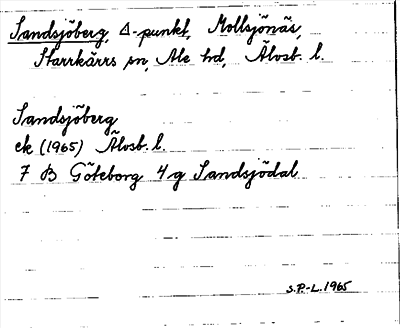 Sandsjöberg, Δ-punkt, Mollsjönäs,
Starrkärrs sn, Ale hd, Älvsb. l.
Sandsjöberg
ek (1965) Älvsb. l.
7 B Göteborg 4 g Sandsjödal
S.P.-L. 1965